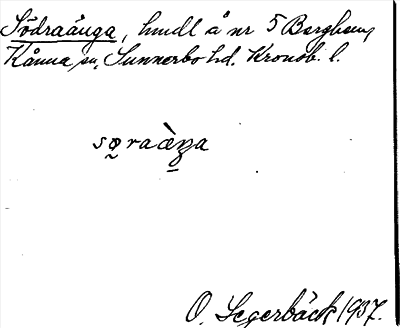 Södraänga, hmdl å nr 5 Berghem,
Kånna sn, Sunnerbo hd. Kronob. l.
sø̰raàŋa
O. Segerbäck 1937.